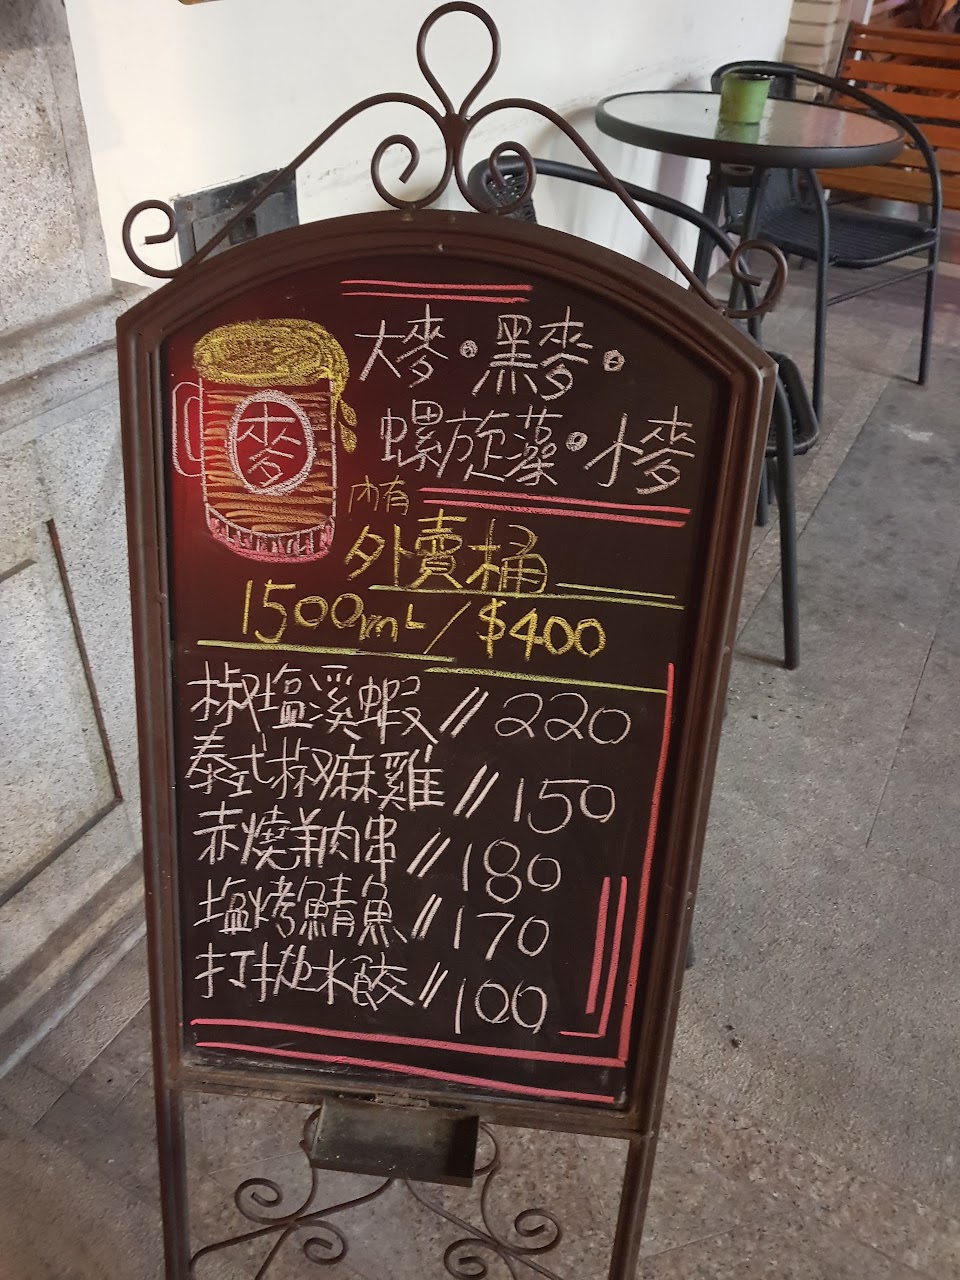 大麥。黑麥。
麥
螺旋藻。小麥
內有
外賣桶
1500mL/$400
椒塩溪蝦//220
泰式椒麻雞//150
赤燒羊肉串//180
塩烤鯖魚//170
打拋水餃//100